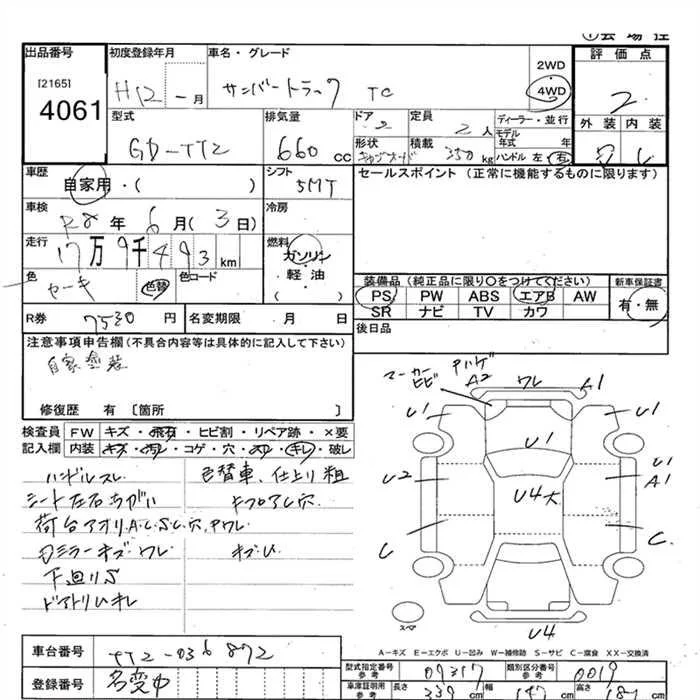 ①会場控
出品番号 初度登録年月 車名・グレード 2WD 評価点
[2165] H12 - 月 サンバートラック TC 4WD
4061 2
型式 排気量 ドア 2 定員 2人 ディーラー・並行 外装 内装
GD-TT2 660 cc 形状 積載 350 kg モデル年式 年
ハンドル 左・右
車歴 シフト セールスポイント (正常に機能するものに限ります)
自家用・( ) 5MT
車検 R8年 6月( 3日) 冷房
走行 17万9千493km 燃料
ガソリン
色 色替 色コード 軽・油 装備品 (純正品に限り○をつけてください) 新車保証書
PS PW ABS エアB AW 有・無
SR ナビ TV カワ
R券 7530 円 名変期限 月 日 後日品
注意事項申告欄(不具合内容等は具体的に記入して下さい)
自家塗装
修復歴 有 [箇所 ]
検査員 FW キズ・飛石・ヒビ割・リペア跡・×要
記入欄 内装 キズ・汚れ・コゲ・穴・スレ・キレ・破レ
ハンドルスレ 色替車、仕上り粗
シート左右ちがい
荷台アオリA.C.S.U.穴.Pワレ
ミラーキズワレ キズU
下廻りS
ドアトリムキレ
マーカーヒビ A2 ワレ A1
U1 U1
U1
U2 U4大 U1
A1
C C
スペア
U4
A-キズ E-エクボ U-凹み W-補修跡 S-サビ C-腐食 XX-交換済
車台番号 TT2-036872
登録番号 名変中
型式指定番号参考 09317 類別区分番号参考 0019
車庫証明用参考 長さ 339 cm 幅 147 cm 高さ 187 cm